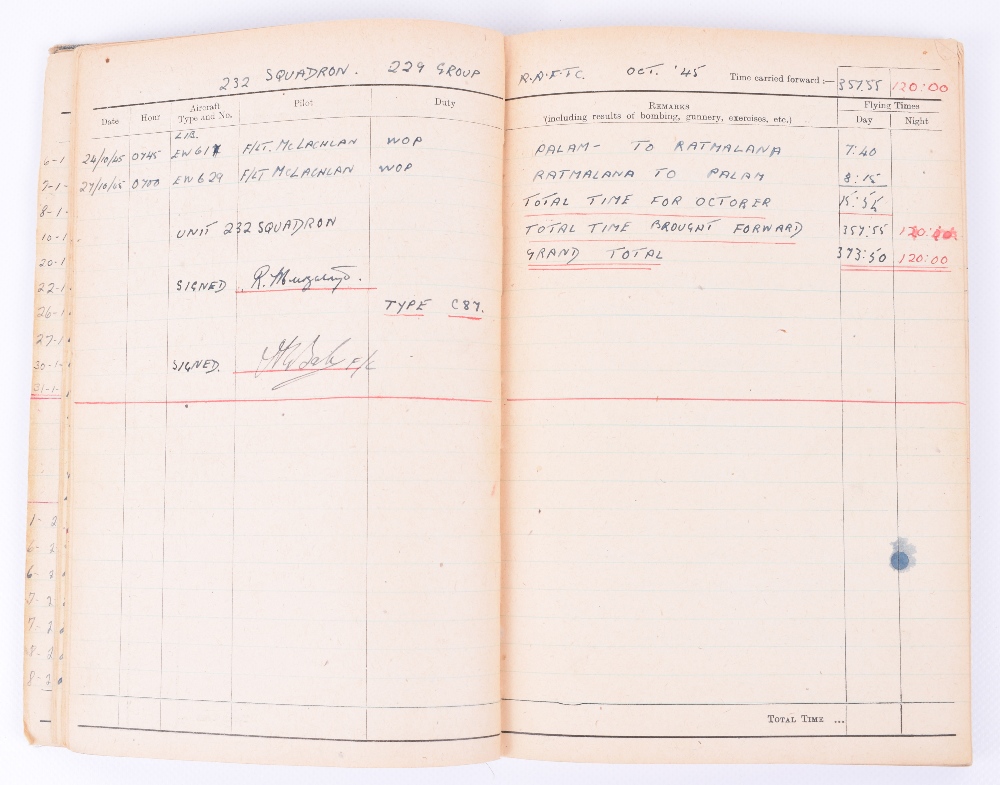 232 SQUADRON. 229 GROUP R.A.F.T.C. OCT. '45 Time carried forward :— 357.55 120:00
Date Hour Aircraft Type and No. Pilot Duty REMARKS (including results of bombing, gunnery, exercises, etc.) Flying Times Day Night
LIB.
24/10/45 0745 EW61 F/LT. McLACHLAN WOP PALAM- TO RATMALANA 7:40
27/10/45 0700 EW629 F/LT McLACHLAN WOP RATMALANA TO PALAM 8:15
TOTAL TIME FOR OCTOBER 15:55
UNIT 232 SQUADRON TOTAL TIME BROUGHT FORWARD 357:55
GRAND TOTAL 373:50 120:00
SIGNED
TYPE C87.
SIGNED. F/L
TOTAL TIME ...
6-1
7-1-
8-1-
10-1.
20-1
22-1
26-1
27-1
30-1-
31-1-
1- 2
6- 2
6- 2
7- 2
7- 2
8- 2
8- 2